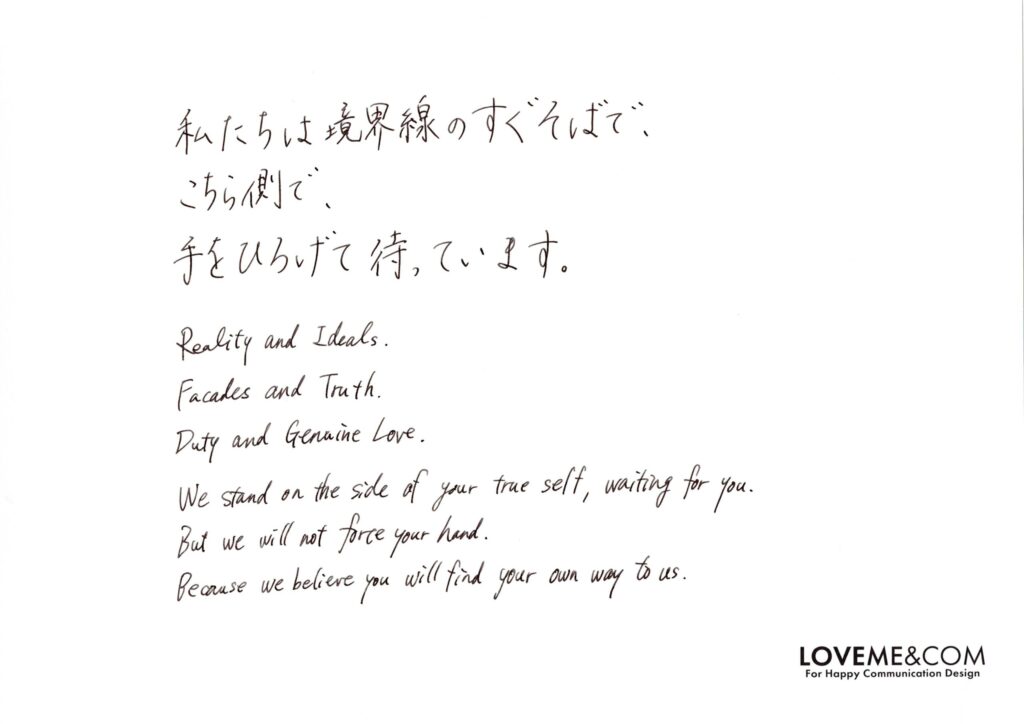 私たちは境界線のすぐそばで、
こちら側で、
手をひろげて待っています。
Reality and Ideals.
Facades and Truth.
Duty and Genuine Love.
We stand on the side of your true self, waiting for you.
But we will not force your hand.
Because we believe you will find your own way to us.
LOVEME&COM
For Happy Communication Design